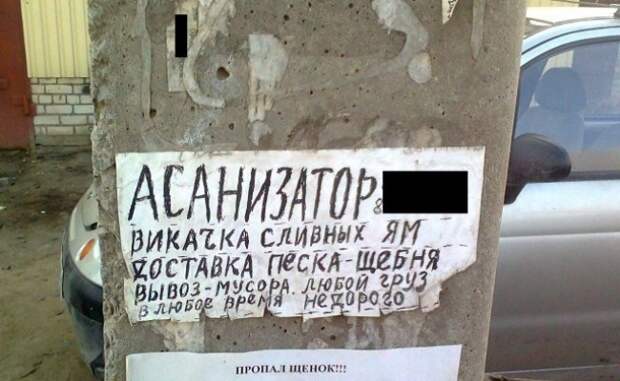 АСАНИЗАТОР 8
ВИКАЧКА СЛИВНЫХ ЯМ
ДОСТАВКА ПЕСКА-ЩЕБНЯ
ВЫВОЗ-МУСОРА, ЛЮБОЙ ГРУЗ
В ЛЮБОЕ ВРЕМЯ НЕДОРОГО
ПРОПАЛ ЩЕНОК!!!